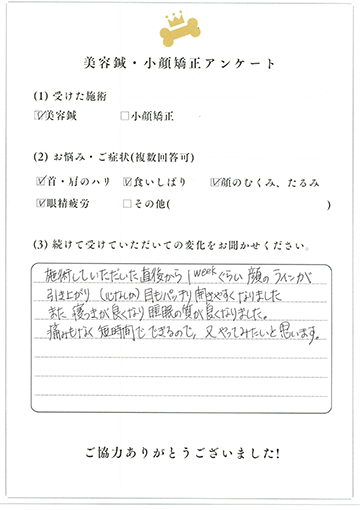 美容鍼・小顔矯正アンケート
(1) 受けた施術
☑美容鍼 □小顔矯正
(2) お悩み・ご症状(複数回答可)
☑首・肩のハリ ☑食いしばり ☑顔のむくみ、たるみ
☑眼精疲労 □その他( )
(3) 続けて受けていただいての変化をお聞かせください。
施術していただいた直後から1weekぐらい顔のラインが
引き上がり(心なしか)目もパッチリ開きやすくなりました
また寝つきが良くなり睡眠の質が良くなりました。
痛みもなく短時間でできるので、又やってみたいと思います。
ご協力ありがとうございました!